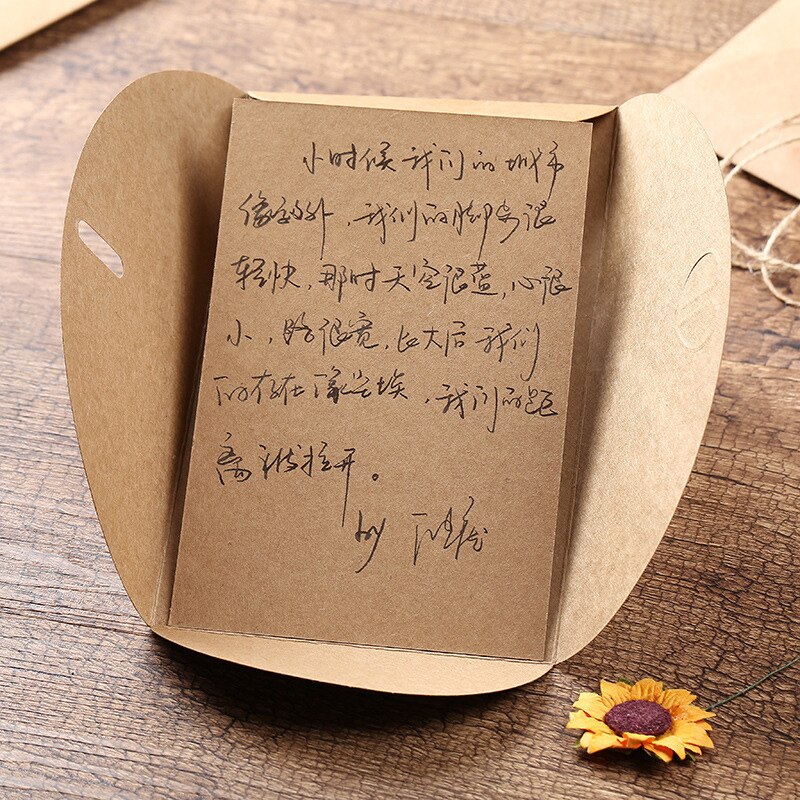 小时候我们的城市
像郊外，我们的脚步很
轻快，那时天空很蓝，心很
小，路很宽，长大后我们
的存在像尘埃，我们的距
离被拉开。
by